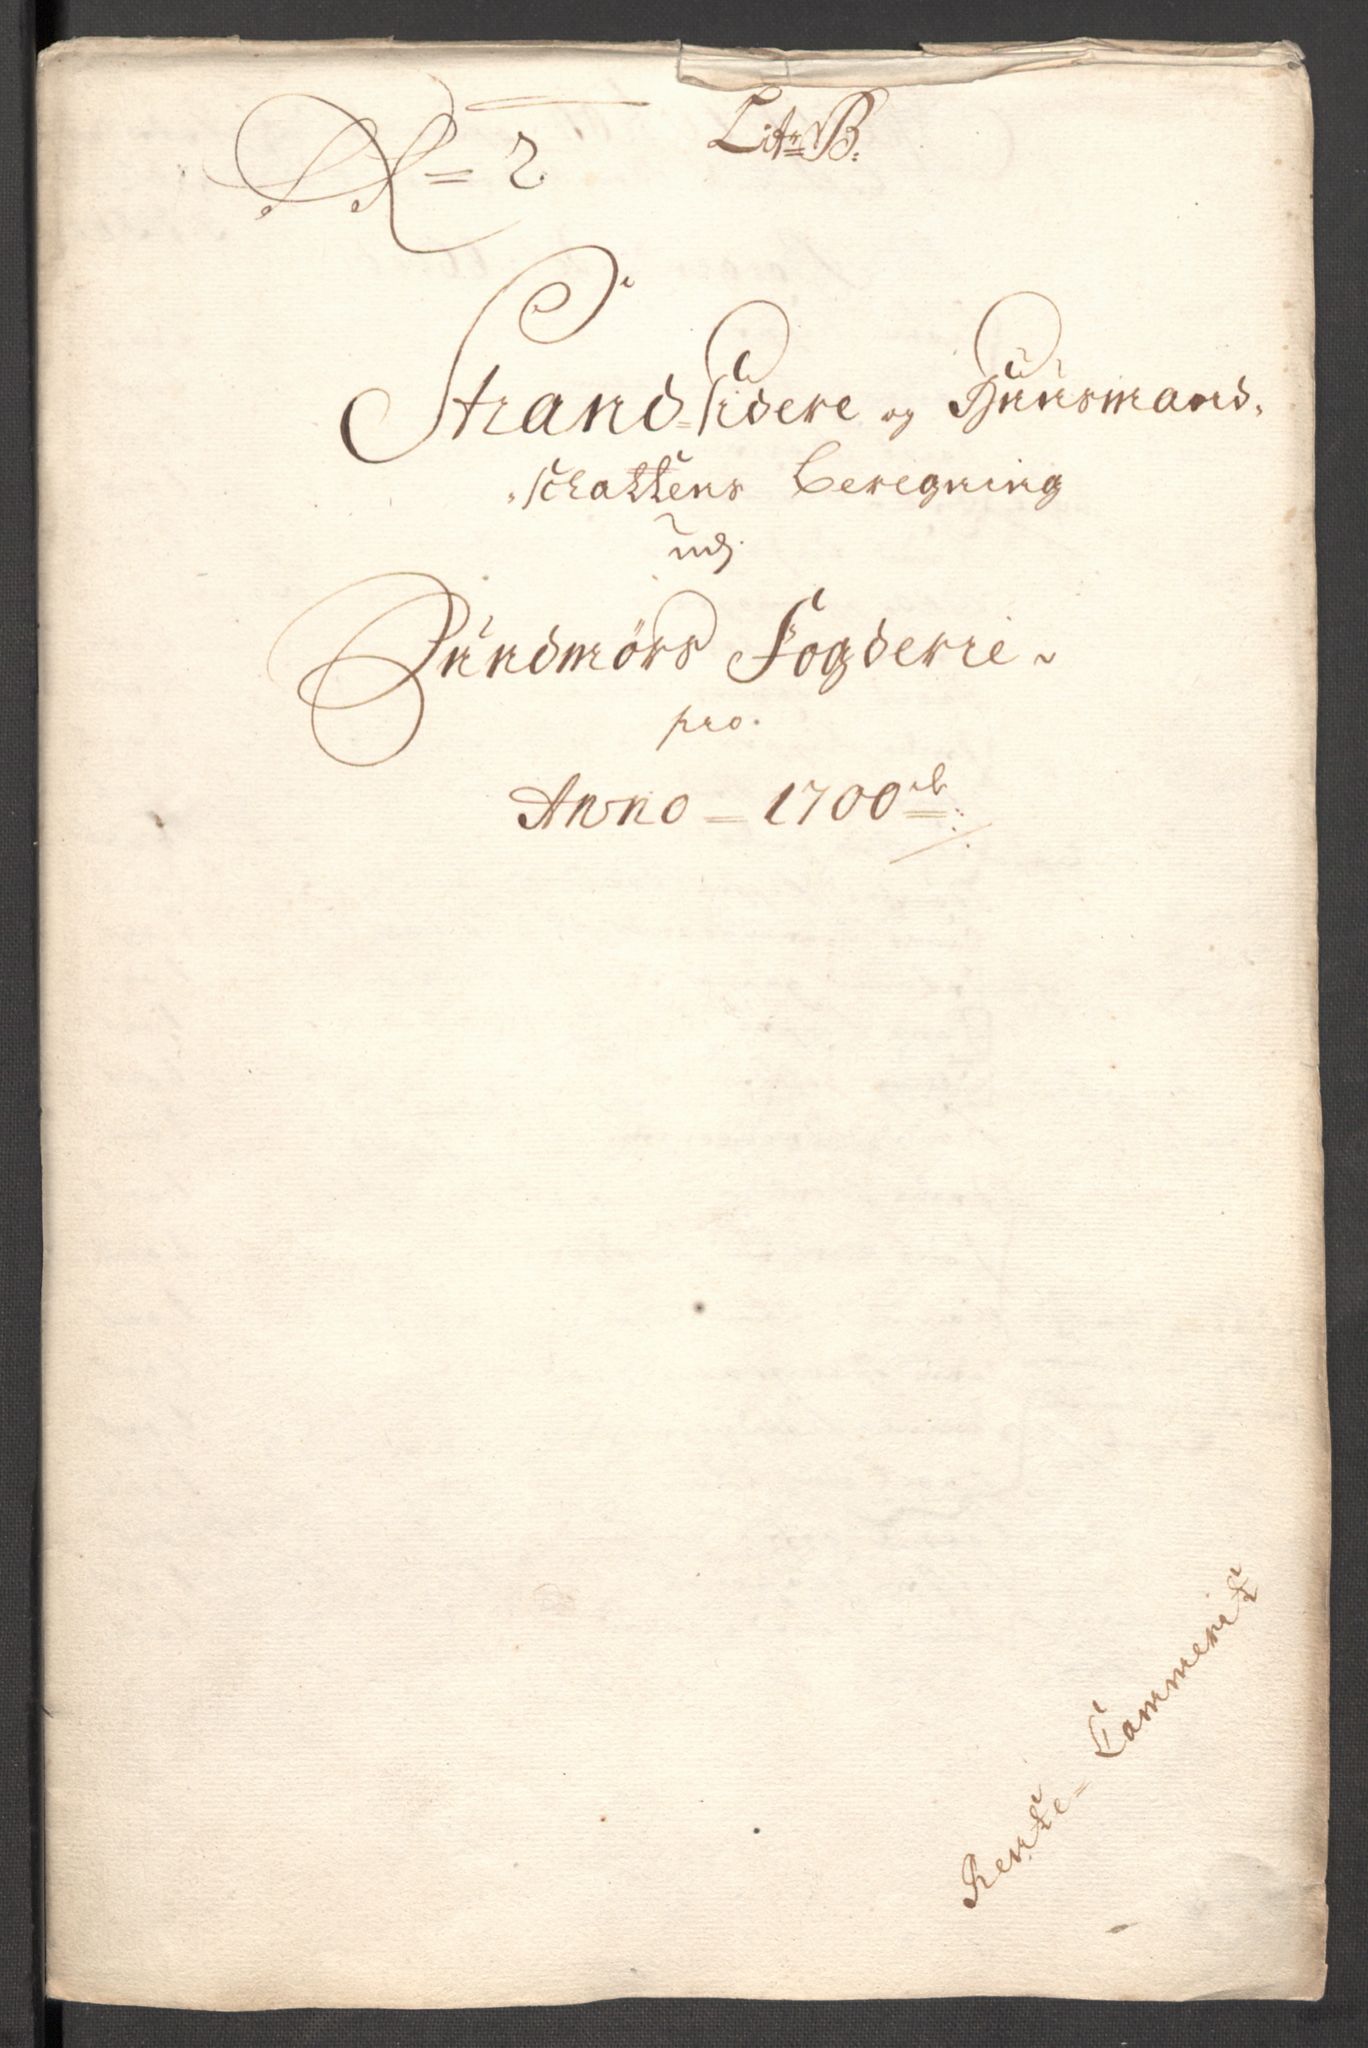 Litr B.
N = 2
Strand-sidere og Huusmand,
schattens beregning
udj
Sundmørs Fogderie
pro.
Anno = 1700
Rente-Cammerit